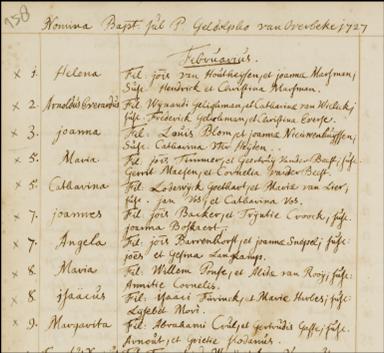 158
Nomina Bapt. sub P. Geldolpho van Overbeke 1727
Februarius.
x 1. Helena Fil. jöis van Houtheffen, et joanna Marsman,
Susc. Hendrik et Christina Marsman.
x 2. Arnoldus Everardus Fil. Wynandi Geligman, et Catharina van
susc. Frederick et Christina Everse.
x 3. joanna Fil. Louis Blom, et joanna
Susc. Catharina ter Heyden.
x 5. Maria Fil. jöis Timmer, et Geertruy Vander Beeft, susc.
Gerrit Maesen, et Cornelia vander Beeft.
x 5. Catharina Fil. Lodewyck Goethart, et Maria van Lier,
susc. jan Vos, et Catharina Vos.
x 7. joannes Fil. jöis Backer, et Tryntie Croock, susc.
joanna Boskaert.
x 7. Angela Fil. jöis Barrenhorst, et joanna susc.
joës et Gesina Langkamps.
x 8. Maria Fil. Willem et Alida van Rooij, susc.
Annitie Cornelis.
x 8. isaäcus Fil. Isaaci et Marie susc.
Lysebet Mori.
x 9. Margarita Fil. Abrahami et Gertrudis susc.
Arnout, et Grietie